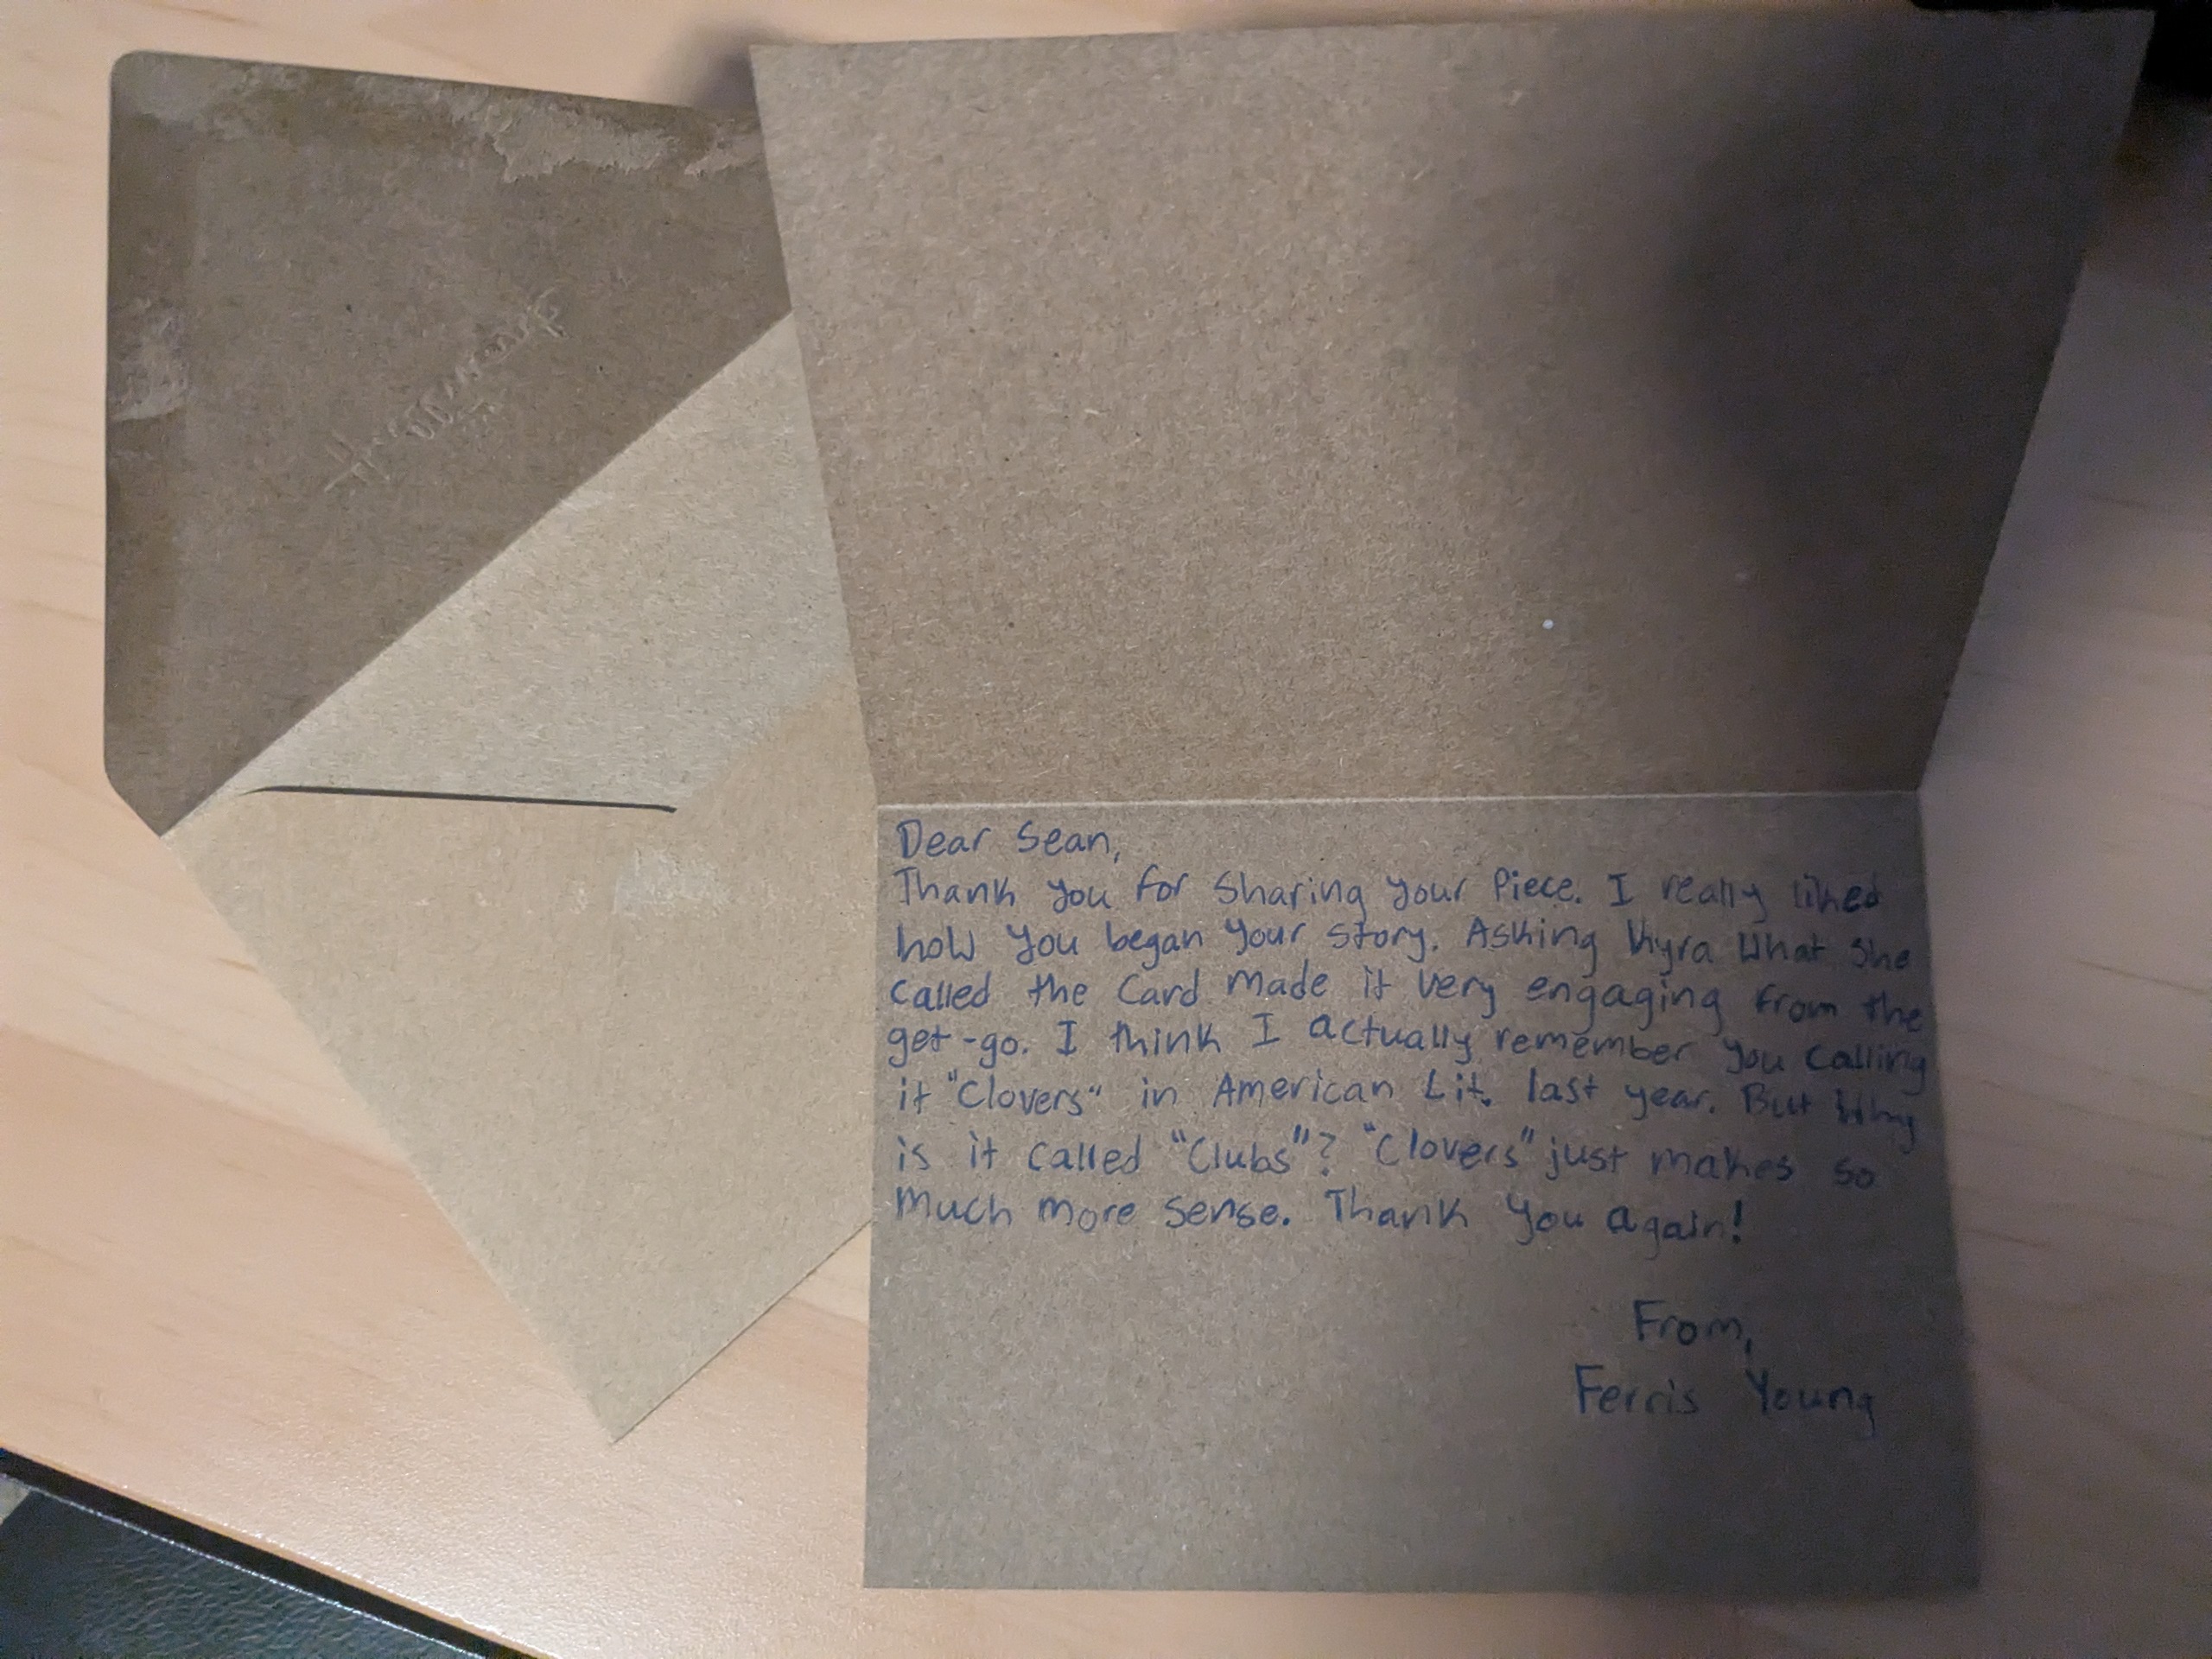 Hallmark
Dear Sean,
Thank you for sharing your Piece. I really liked
how you began your story. Asking Kyra what she
called the card made it very engaging from the
get-go. I think I actually remember you calling
it "Clovers" in American Lit. last year. But why
is it called "Clubs"? "Clovers" just makes so
much more sense. Thank you again!
From,
Ferris Young